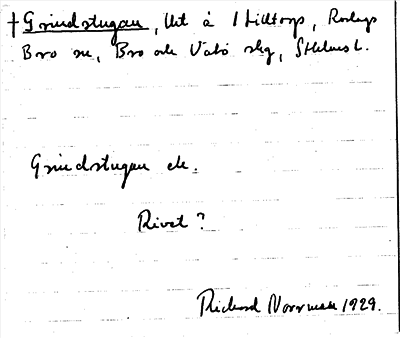 †Grindstugan, Utj å 1 Lilltorp, Roslags
Bro sn, Bro och Vätö skg, Sthlms l.
Grindstugan ek.
Rivet?
Richard Norrman 1929.